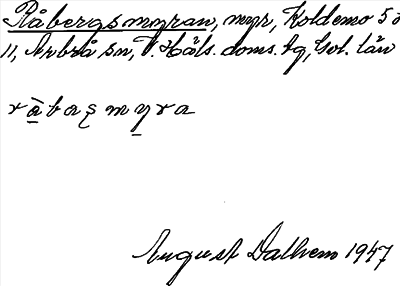 Råbergsmyran, myr, Koldemo 5 o
11, Arbrå sn, V. Häls. doms. tg, Gvl. län
råbasmyra
August Dalhem 1947